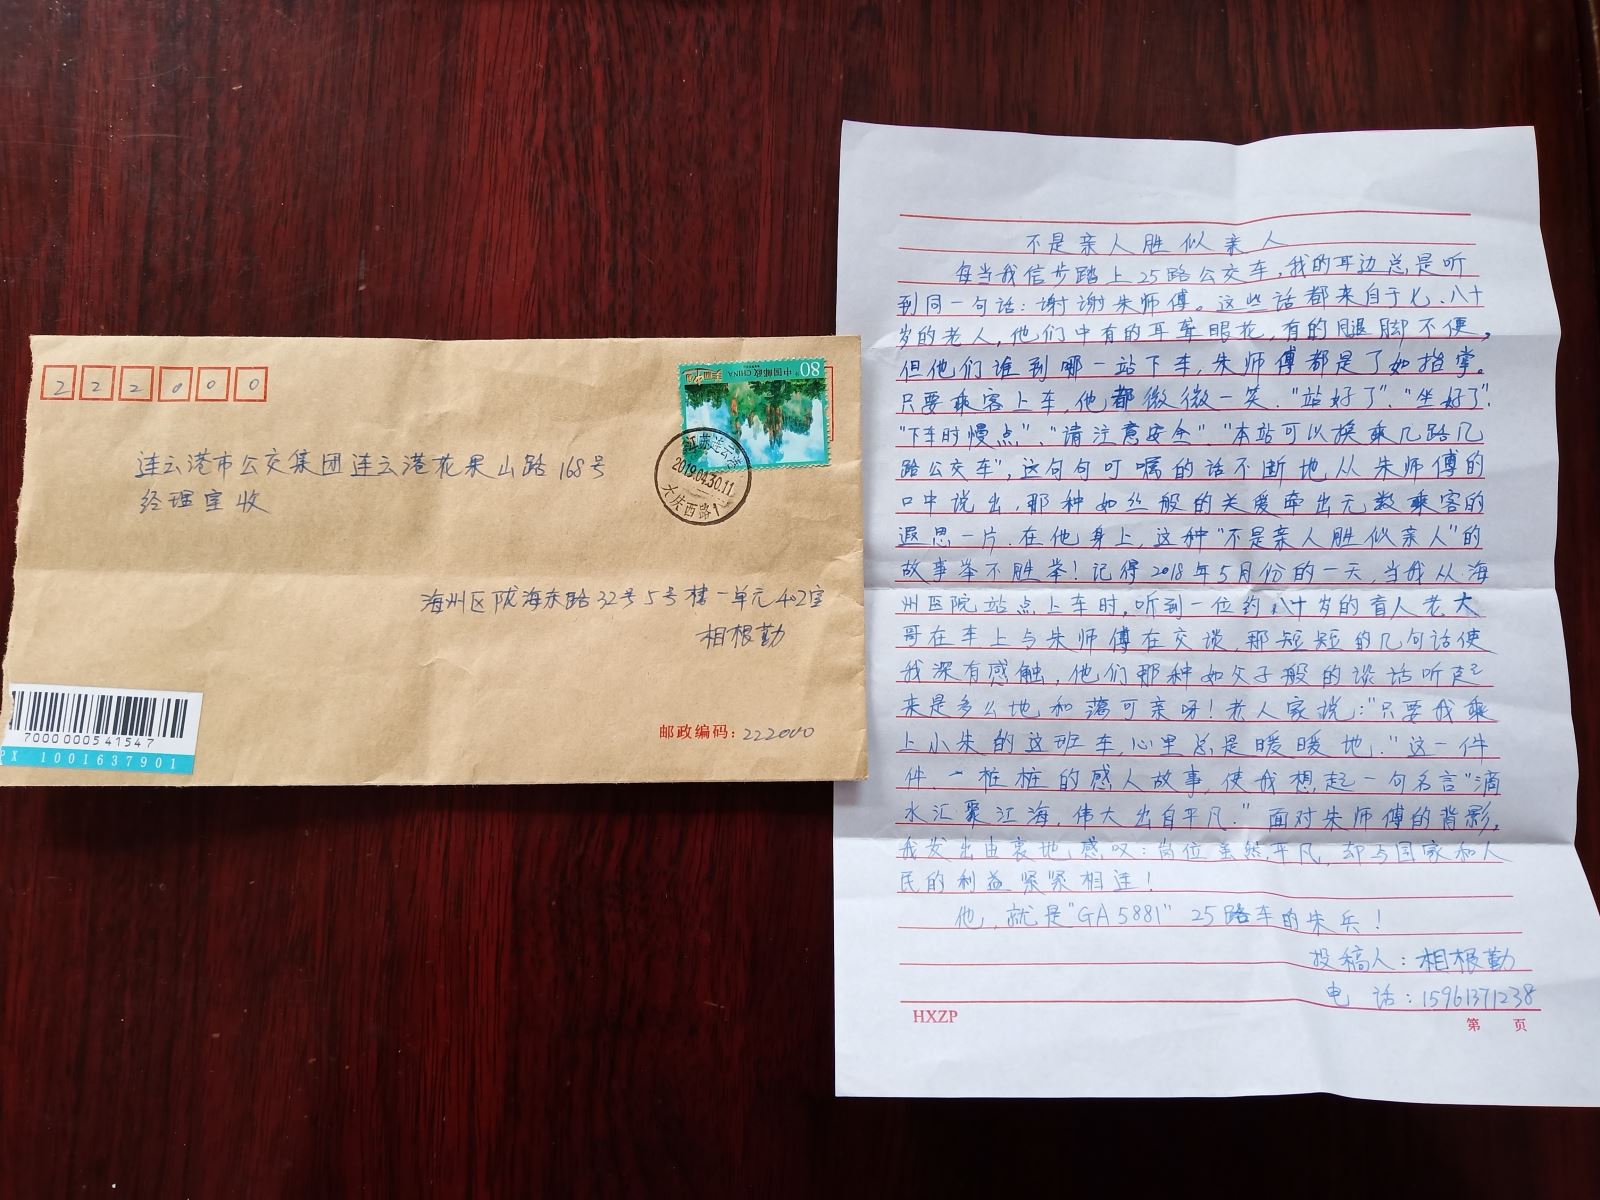 222000
中国邮政 CHINA
80
江苏连云港
2019.04.30.11
大庆西路1
连云港市公交集团连云港花果山路168号
经理室收
海州区陇海东路32号5号楼一单元402室
相根勤
邮政编码:222000
7000000541547
PX 1001637901
不是亲人胜似亲人
每当我信步踏上25路公交车,我的耳边总是听
到同一句话:谢谢朱师傅。这些话都来自于七、八十
岁的老人,他们中有的耳聋眼花,有的腿脚不便,
但他们谁到哪一站下车,朱师傅都是了如指掌。
只要乘客上车,他都微微一笑."站好了"、"坐好了".
"下车时慢点"、"请注意安全"、"本站可以换乘几路几
路公交车",这句句叮嘱的话不断地从朱师傅的
口中说出,那种如丝般的关爱牵出无数乘客的
遐思一片.在他身上,这种"不是亲人胜似亲人"的
故事举不胜举!记得2018年5月份的一天,当我从海
州医院站点上车时,听到一位约八十岁的盲人老大
哥在车上与朱师傅在交谈,那短短的几句话使
我深有感触,他们那种如父子般的谈话听起
来是多么地和蔼可亲呀!老人家说:"只要我乘
上小朱的这班车,心里总是暖暖地."这一件
件、一桩桩的感人故事,使我想起一句名言"滴
水汇聚江海,伟大出自平凡."面对朱师傅的背影,
我发出由衷地感叹:岗位虽然平凡,却与国家和人
民的利益紧紧相连!
他,就是"GA5881"25路车的朱兵!
投稿人:相根勤
电 话:15961371238
HXZP
第 页